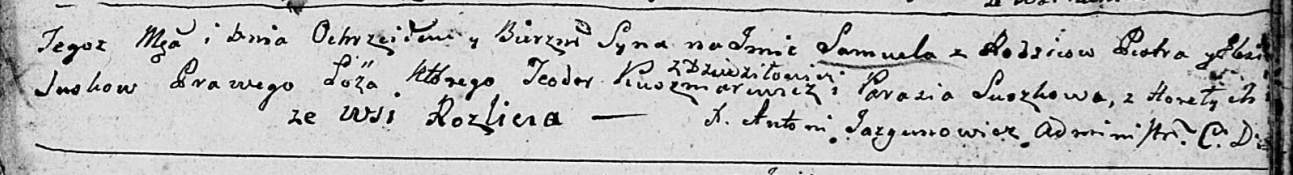 Tegoż Mca i dnia Ochrzciłem y Bierzm Syna na Imie Samuela z Rodzicow Piotra y
Suszkow Prawego Łoża którego Teodor Kuszmarewicz z Dziedziłowicz i Parasia Suszkowa, z
ze wsi Rozliena — X. Antoni Jazgunowicz Administr. C. D